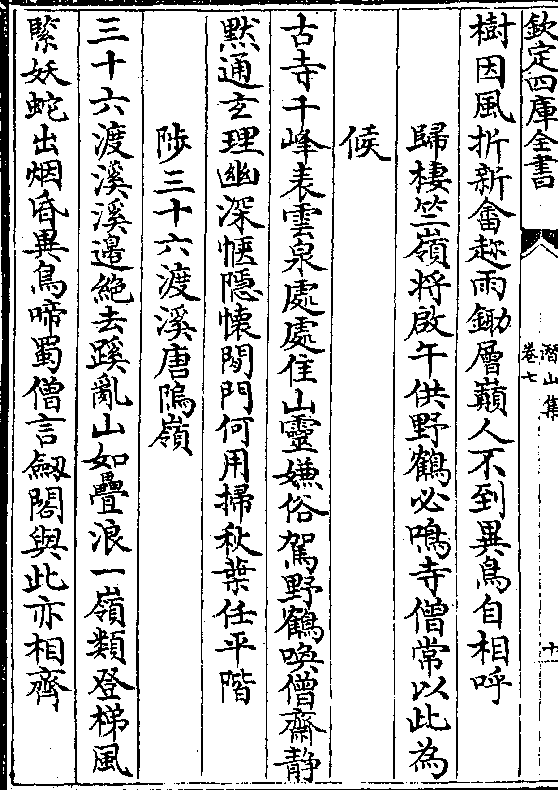 欽定四庫全書
潛山集
卷七
十
樹因風折新畬趂雨鋤層巔人不到異鳥自相呼
歸棲竺嶺將啟午供野鶴必鳴寺僧常以此為
候
古寺千峰表雲泉處處住山靈嫌俗駕野鶴喚僧齋静
默通玄理幽深愜隱懷閉門何用掃秋葉任平階
陟三十六渡溪唐隖嶺
三十六渡溪溪邉絶去蹊亂山如疊浪一嶺類登梯風
緊妖蛇出烟昏異鳥啼蜀僧言劔閣與此亦相齊